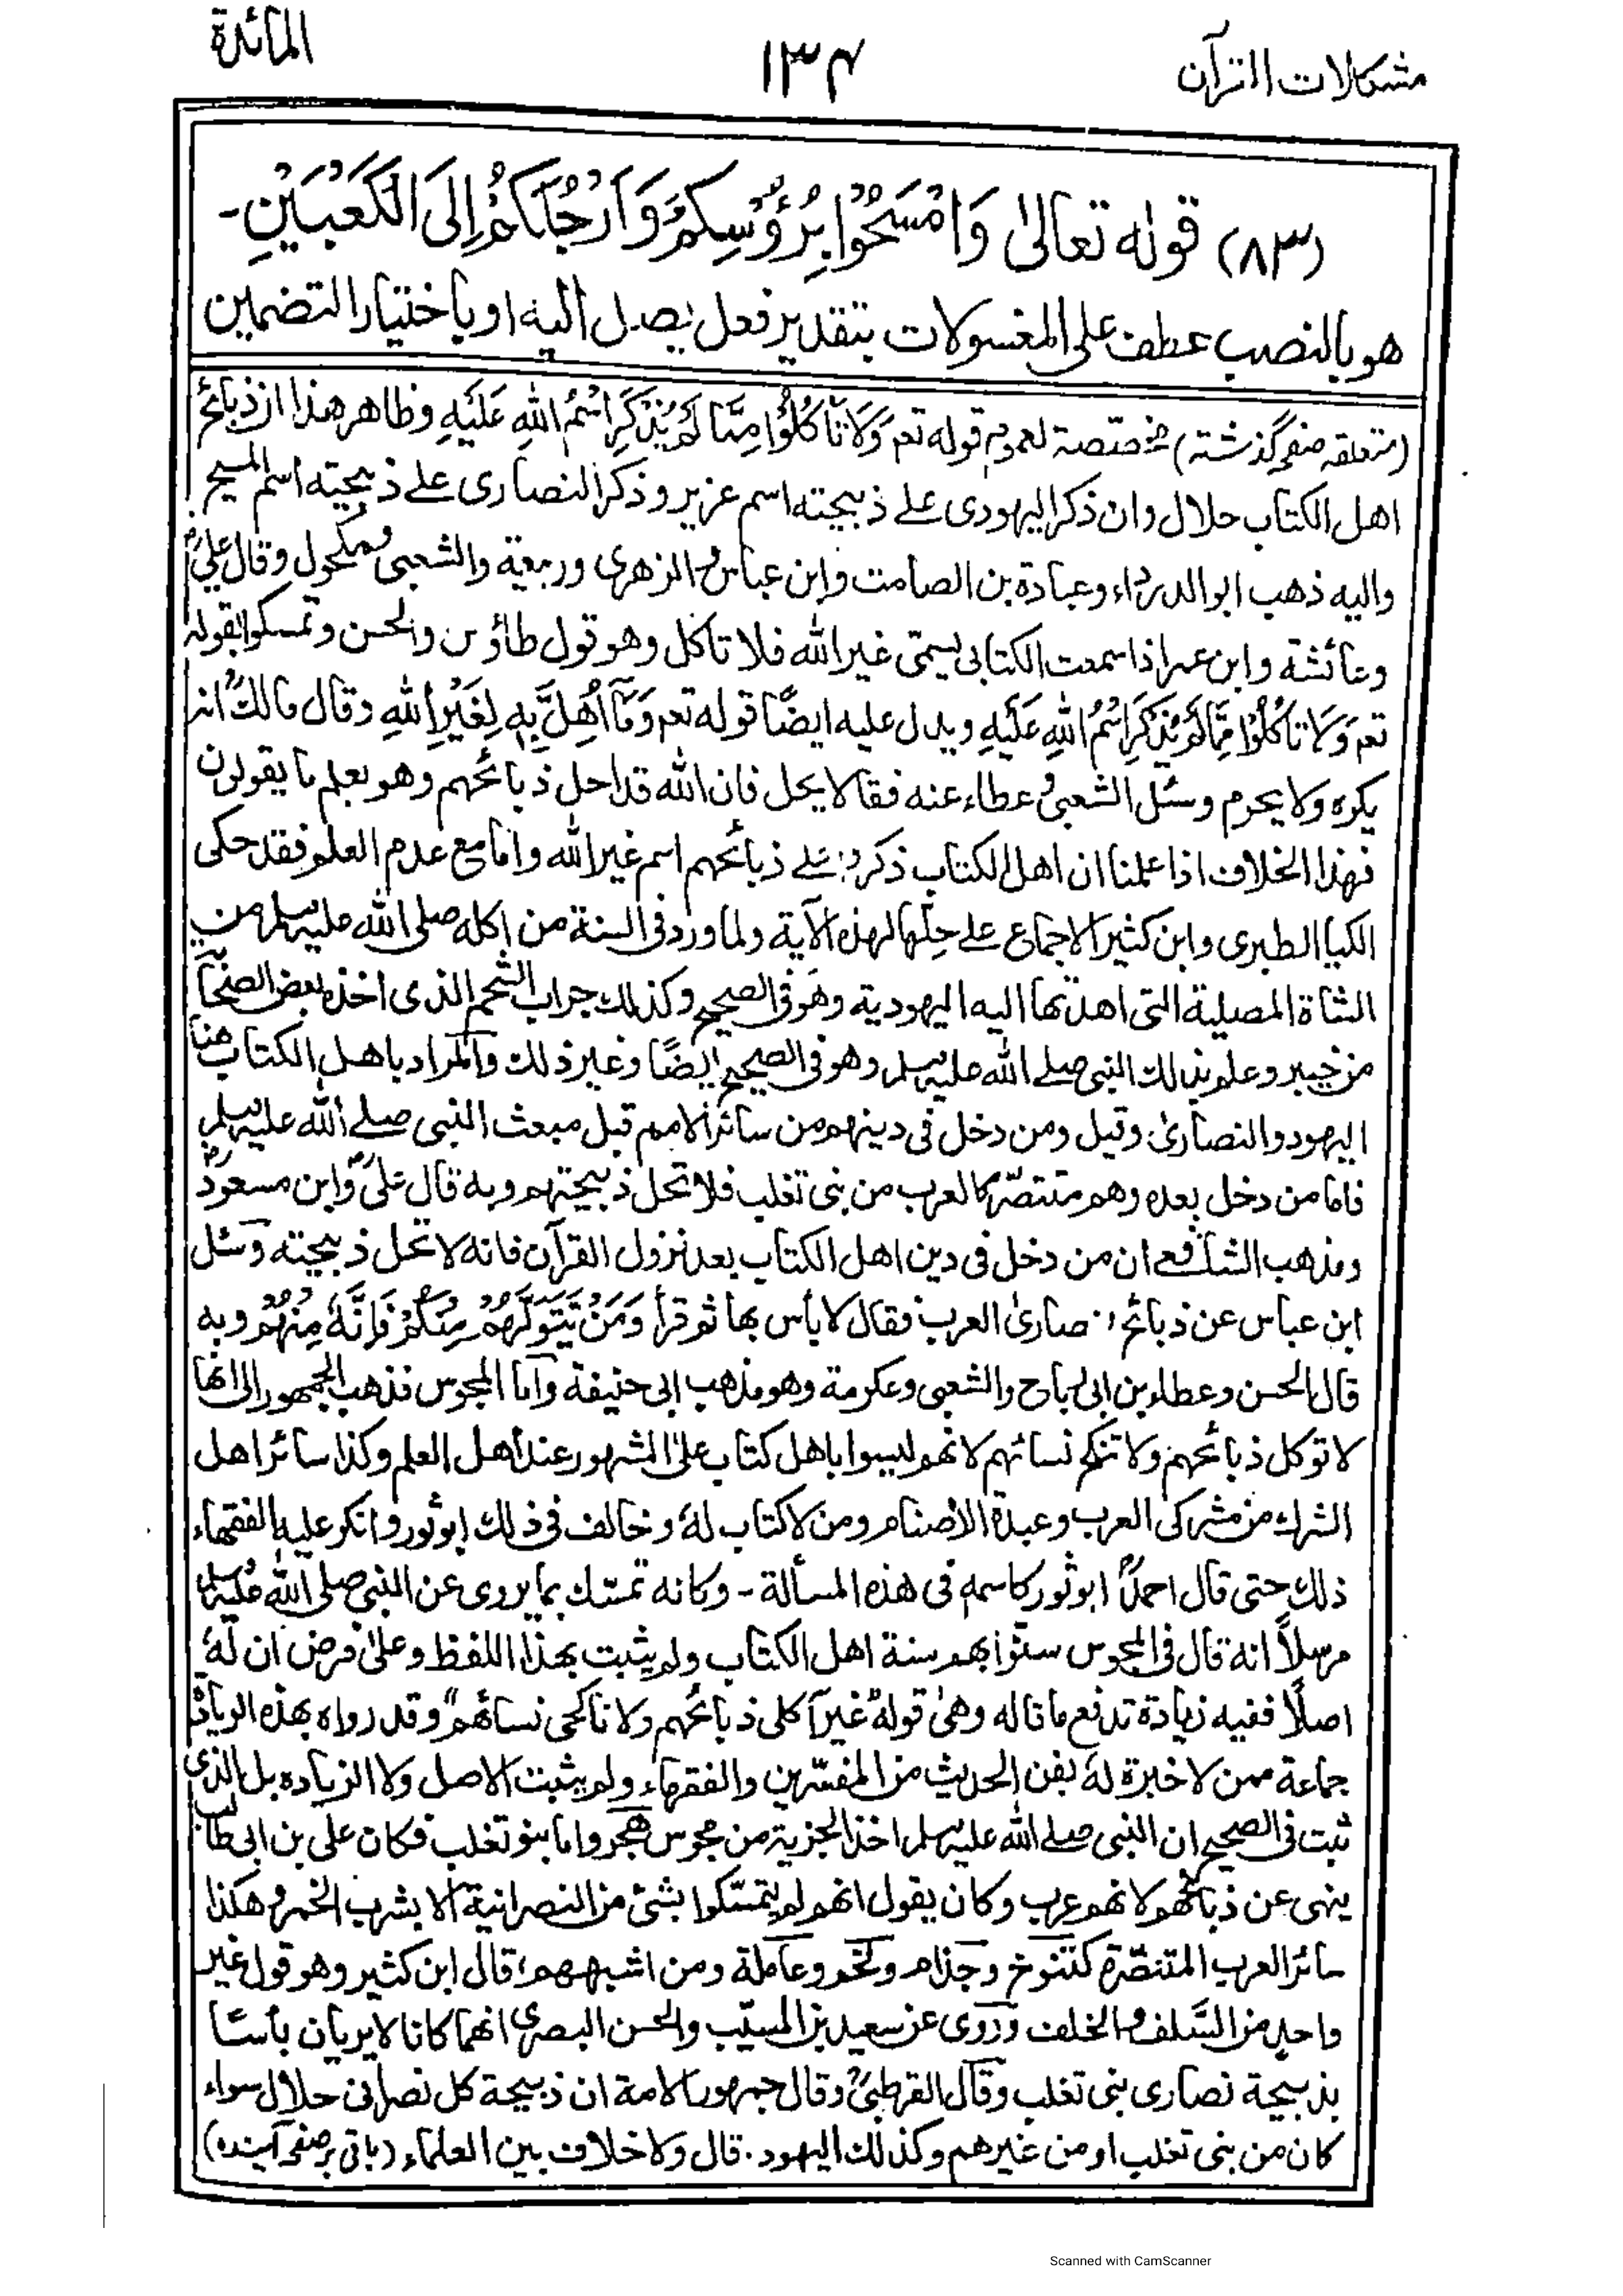 مشكلات القرآن
۱۳۴
المائدة
(۸۳) قوله تعالىٰ وَامْسَحُوْا بِرُؤُسِكُمْ وَاَرْجُلَكُمْ اِلَى الْكَعْبَيْنِ۔
هو بالنصب عطف على المغسولات بتقدير فعل يصل اليه او باختيار التضمين
(متعلقہ صفحہ گذشتہ) مخصصة لعموم قوله تعم وَلَا تَأكُلُوْا مِمَّا لَمْ يُذْكَرِ اسْمُ اللهِ عَلَيْهِ وظاهر هذا ان ذبائح
اهل الكتاب حلال وان ذكر اليهودى علے ذبيحته اسم عزير وذكر النصارى علے ذبيحته اسم المسيح
واليه ذهب ابو الدرداء وعبادة بن الصامت وابن عباس والزهرى وربيعة والشعبى ومكحول وقال عليؓ
وعائشة وابن عمر اذا سمعت الكتابى يسمّى غير الله فلا تاكل وهو قول طاؤس والحسن وتمسكوا بقوله
تعم وَلَا تَاكُلُوْا مِمَّا لَمْ يُذْكَرِ اسْمُ اللهِ عَلَيْهِ ويدل عليه ايضًا قوله تعم وَمَآ اُهِلَّ بِهٖ لِغَيْرِ اللهِ وقال مالكؒ انه
يكره ولا يحرم وسئل الشعبى وعطاء عنه فقالا يحل فان الله قد احل ذبائحهم وهو يعلم ما يقولون
فهذا الخلاف اذا علمنا ان اهل الكتاب ذكروا علے ذبائحهم اسم غير الله واما مع عدم العلم فقد حكى
الكيا الطبرى وابن كثير الاجماع علے حِلّها لهذه الآية ولما ورد فى السنة من اكله صلى الله عليه وسلم من
الشاة المصلية التى اهدتها اليه اليهودية وهو فى الصحيح وكذلك جراب الشحم الذى اخذه بعض الصحابة
من خيبر وعلم بذلك النبى صلے الله عليه وسلم وهو فى الصحيح ايضًا وغير ذلك والمراد باهل الكتاب هنا
اليهود والنصارىٰ وقيل ومن دخل فى دينهم من سائر الامم قبل مبعث النبى صلے الله عليه وسلم
فاما من دخل بعده وهم متنصّر كالعرب من بنى تغلب فلا تحل ذبيحتهم وبه قال علىؓ وابن مسعودؓ
ومذهب الشافعے ان من دخل فى دين اهل الكتاب بعد نزول القرآن فانه لا تحل ذبيحته وسئل
ابن عباس عن ذبائح نصارىٰ العرب فقال لا بأس بها ثم قرأ وَمَنْ يَّتَوَلَّهُمْ مِّنْكُمْ فَاِنَّهٗ مِنْهُمْ وبه
قال الحسن وعطاء بن ابى رباح والشعبى وعكرمة وهو مذهب ابى حنيفة واما المجوس فذهب الجمهور الى انها
لا توكل ذبائحهم ولا تنكح نسائهم لانهم ليسوا باهل كتاب على المشهور عند اهل العلم وكذا سائر اهل
الشرك من مشركى العرب وعبدة الاصنام ومن لا كتاب لهٗ وخالف فى ذلك ابو ثور وانكر عليه الفقهاء
ذلك حتى قال احمدؒ ابو ثور كاسمه فى هذه المسألة - وكانه تمسّك بما يروى عن النبى صلى الله عليه وسلم
مرسلاً انه قال فى المجوس سنّوا بهم سنة اهل الكتاب ولم يثبت بهذا اللفظ وعلى فرض ان لهٗ
اصلًا ففيه زيادة تدفع ما قاله وهى قولهٗ غير آكلى ذبائحهم ولا ناكحى نسائهم وقد رواه بهذه الزيادة
جماعة ممن لا خبرة لهٗ بفن الحديث من المفسّرين والفقهاء ولم يثبت الاصل ولا الزياده بل الذى
ثبت فى الصحيح ان النبى صلے الله عليه وسلم اخذ الجزية من مجوس هَجَر واما بنو تغلب فكان على بن ابى طالب
ينهى عن ذبائحهم لانهم عرب وكان يقول انهم لم يتمسّكوا بشئ من النصرانية الا بشرب الخمر وهكذا
سائر العرب المتنصّرة كتنوخ وجذام ولخم وعاملة ومن اشبههم، قال ابن كثير وهو قول غير
واحد من السَّلف والخلف ورُوى عن سعيد بن المسيّب والحسن البصرى انهما كانا لا يريان بأسًا
بذبيحة نصارى بنى تغلب وقال القرطبىؒ وقال جمهور الامة ان ذبيحة كل نصرانى حلال سواء
كان من بنى تغلب او من غيرهم وكذلك اليهود. قال ولا خلاف بين العلماء (باقى بر صفحہ آيندہ)
Scanned with CamScanner